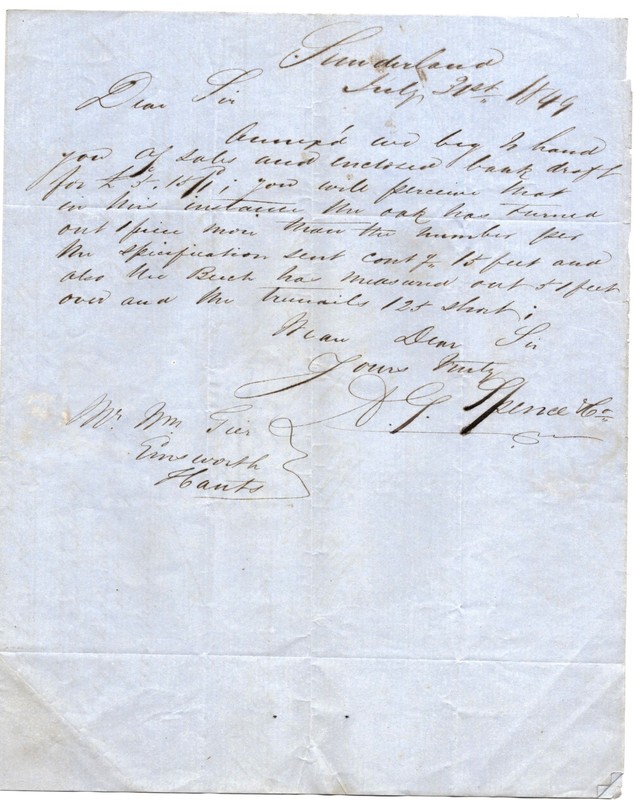 Sunderland
July 31st 1849
Dear Sir
Annex'd we beg to hand
you of sales and enclosed bank draft
for £ you will perceive that
in this instance the oak has turned
out 1 piece more than the number per
the specification sent cont'g 15 feet and
also the Beech has measured out 51 feet
over and the trenails 125 short;
We are Dear Sir
Yours truly
D. G. Spence & Co
Mr. Wm.
Emsworth
Hants